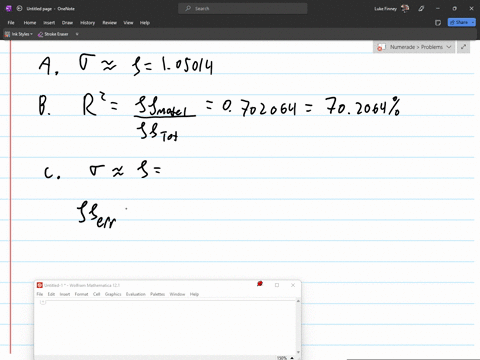 Untitled page - OneNote
Search
Luke Finney
File Home Insert Draw History Review View Help
Share
Ink Styles Stroke Eraser
Numerade > Problems
A. σ ≈ S = 1.05014
B. R² = SS_Model / SS_Tot = 0.702064 = 70.2064%
C. σ ≈ S =
SS_err
Untitled-1 * - Wolfram Mathematica 12.1
File Edit Insert Format Cell Graphics Evaluation Palettes Window Help
150%